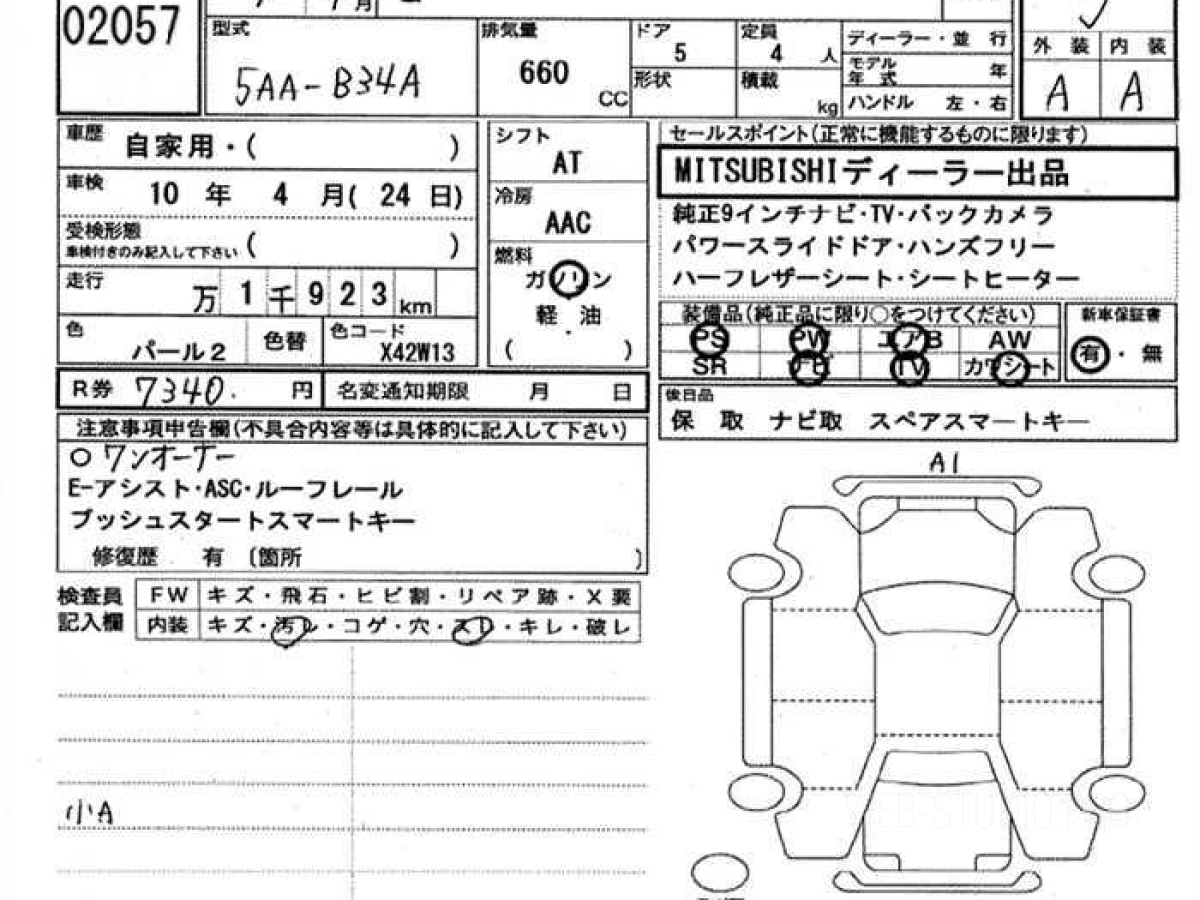 02057
型式
5AA-B34A
排気量
660
CC
ドア
5
形状
定員
4 人
積載
kg
ディーラー・並 行
モデル年式 年
ハンドル 左・右
外 装 内 装
A A
車歴 自家用・( )
車検 10 年 4 月( 24 日)
受検形態
車検付きのみ記入して下さい ( )
走行 万 1 千 9 2 3 km
色 パール2 色替 色コード X42W13
シフト
AT
冷房
AAC
燃料
ガソリン
軽・油
( )
セールスポイント(正常に機能するものに限ります)
MITSUBISHIディーラー出品
純正9インチナビ・TV・バックカメラ
パワースライドドア・ハンズフリー
ハーフレザーシート・シートヒーター
装備品(純正品に限り○をつけてください)
PS PW エアB AW
SR ナビ TV カワシート
新車保証書
有・無
R券 7340. 円 名変通知期限 月 日
後日品
保 取 ナビ取 スペアスマートキー
注意事項申告欄(不具合内容等は具体的に記入して下さい)
○ ワンオーナー
E-アシスト・ASC・ルーフレール
プッシュスタートスマートキー
修復歴 有 〔箇所 〕
検査員記入欄
FW キズ・飛石・ヒビ割・リペア跡・X要
内装 キズ・汚レ・コゲ・穴・スレ・キレ・破レ
小A
A1